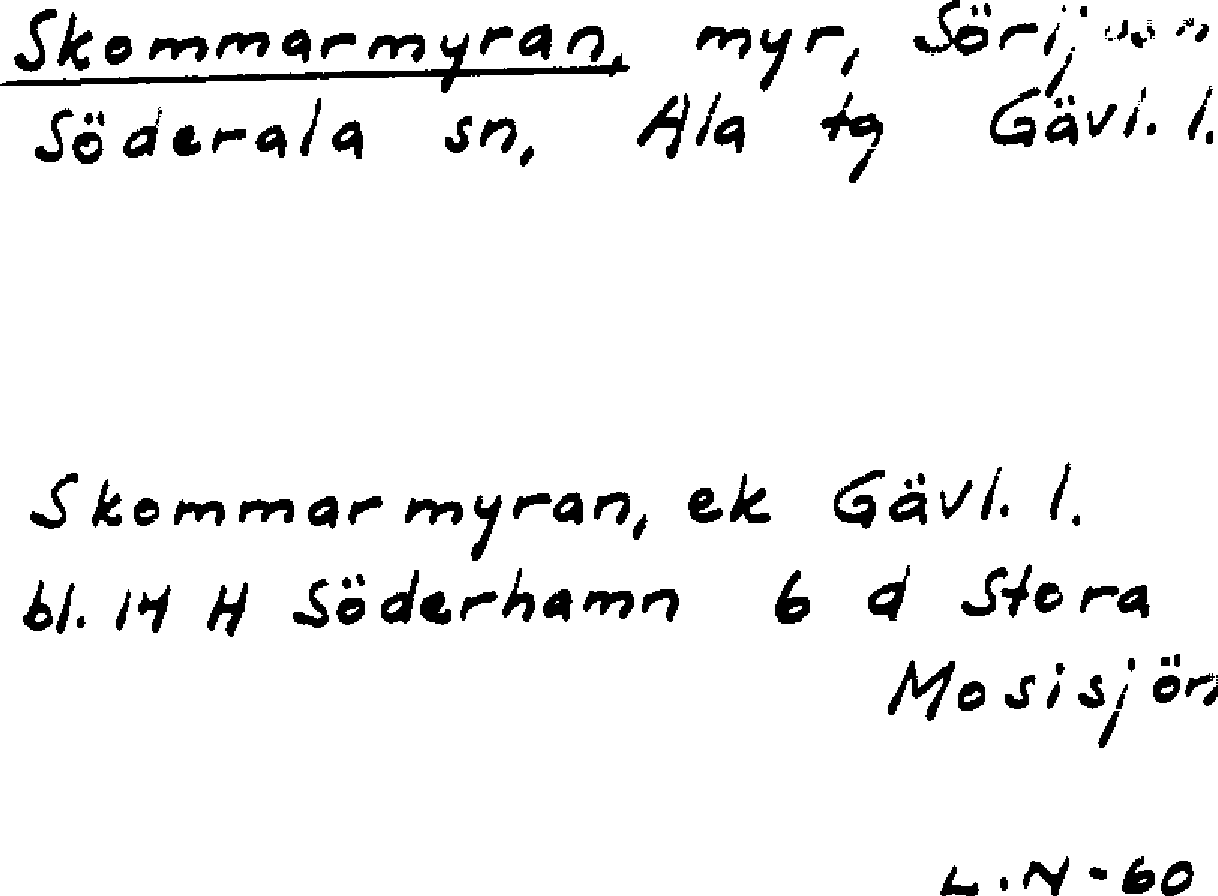 Skommarmyran, myr,
Söderala sn, Ala tg Gävl. l.
Skommarmyran, ek Gävl. l.
bl. 14 H Söderhamn 6 d Stora
Mosisjön
L.N-60